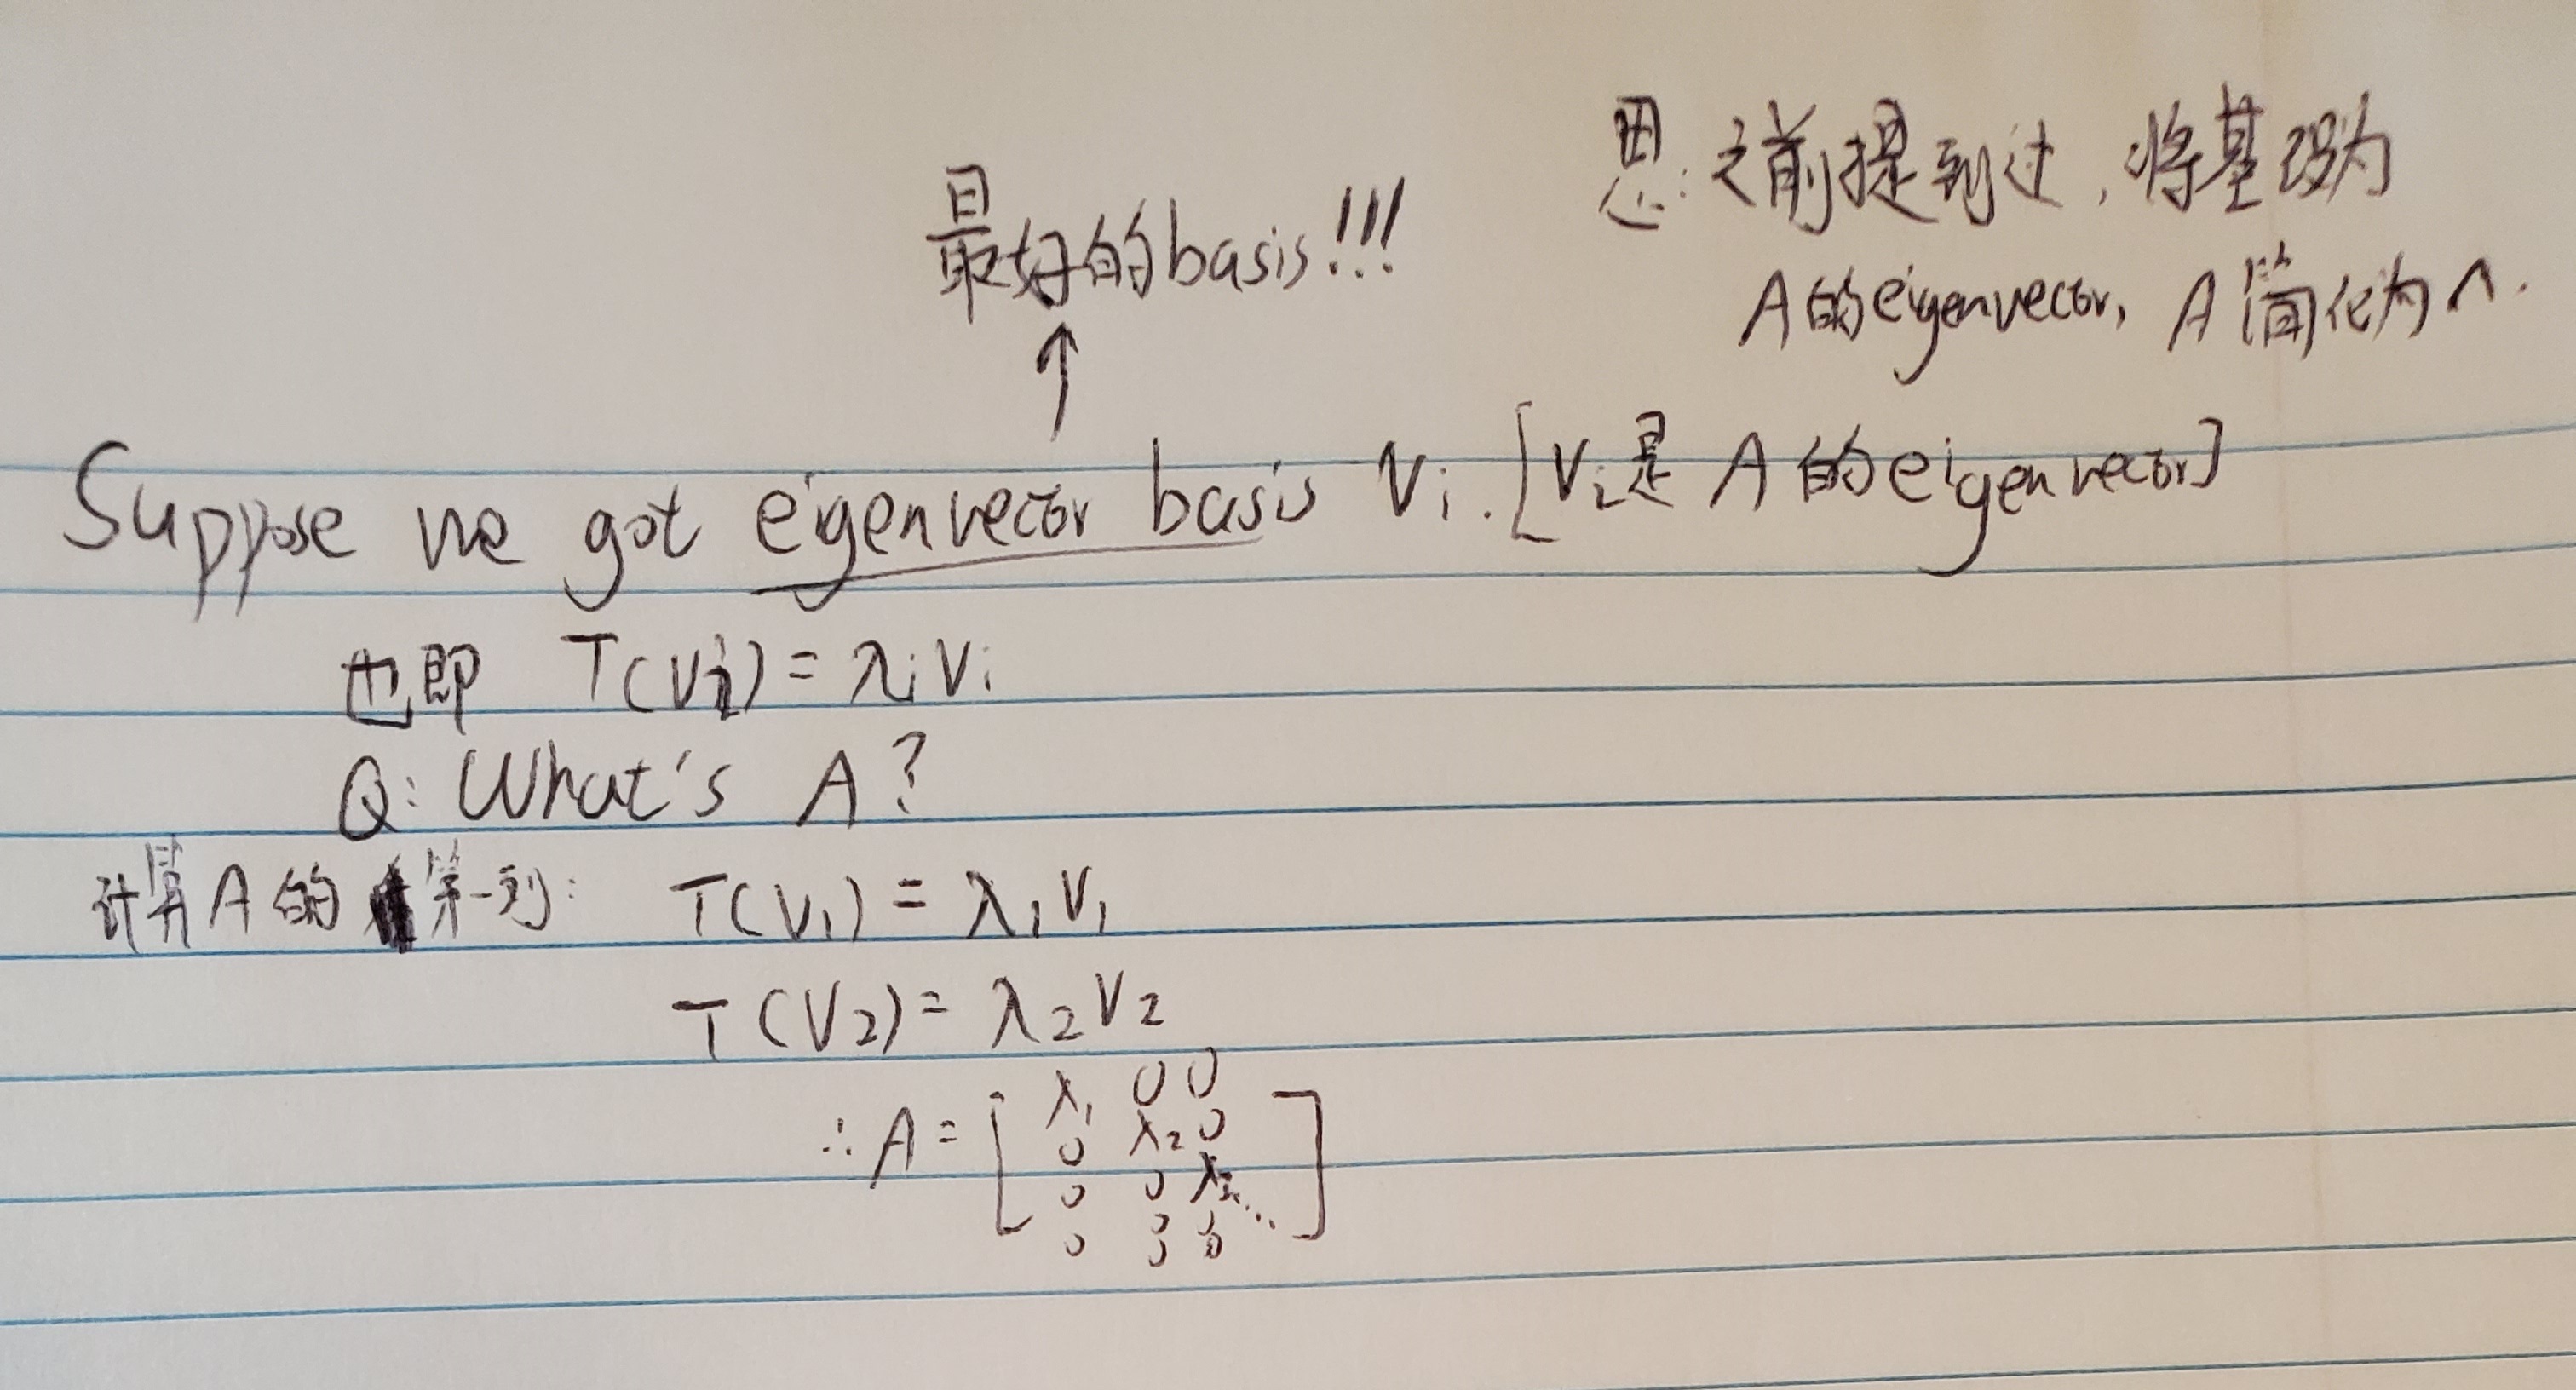 思:之前提到过,将基设为
A的eigenvector, A简化为Λ.
最好的basis!!!
↑
Suppose we got eigenvector basis Vi. [Vi是A的eigenvector]
也即 T(Vi) = λiVi
Q: What's A?
计算A的第一列: T(V1) = λ1V1
T(V2) = λ2V2
∴ A = [
λ1 0 0
0 λ2 0
0 0 λ3 ⋱
0 0 0
]